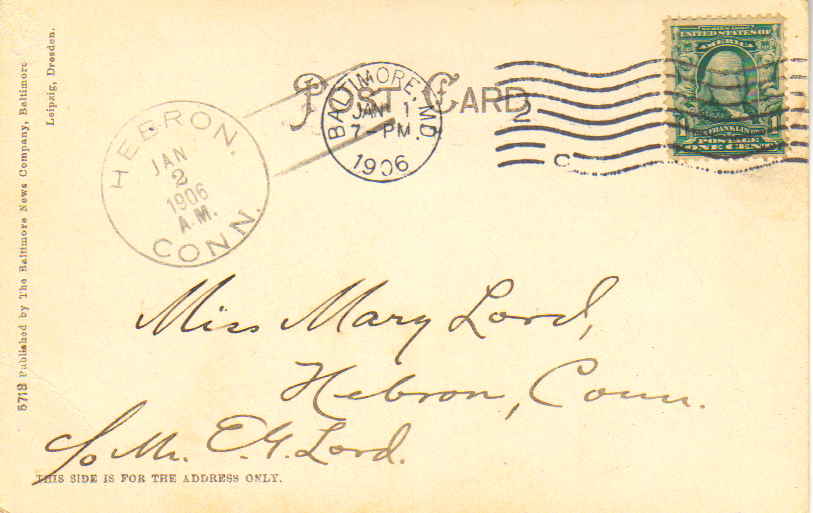 POST CARD
BALTIMORE, MD.
JAN 1
7-PM
1906
2
C
UNITED STATES OF
AMERICA
FRANKLIN
POSTAGE
1 ONE CENT 1
HEBRON,
JAN
2
1906
A.M.
CONN.
Miss Mary Lord,
Hebron, Conn.
c/o Mr. E.G. Lord.
THIS SIDE IS FOR THE ADDRESS ONLY.
5713 Published by The Baltimore News Company, Baltimore
Leipzig, Dresden.